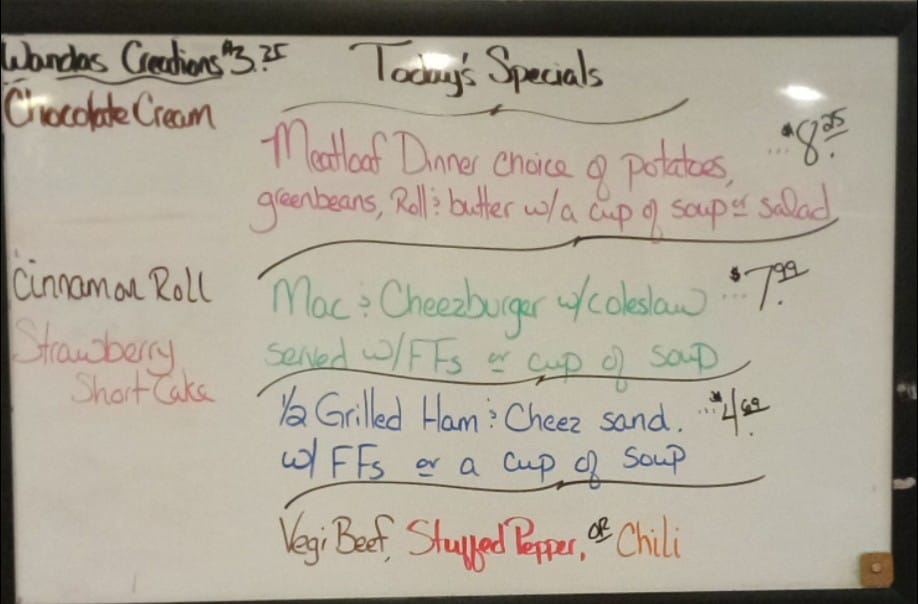 Wandas Creations $3.25
Chocolate Cream
Cinnamon Roll
Strawberry
Short Cake
Today's Specials
Meatloaf Dinner choice of potatoes, ... $8.25
greenbeans, Roll & butter w/a cup of soup or salad
Mac & Cheezburger w/coleslaw ... $7.99
served w/FFs or cup of soup
1/2 Grilled Ham & Cheez sand. ... $4.69
w/ FFs or a cup of soup
Vegi Beef, Stuffed Pepper, OR Chili